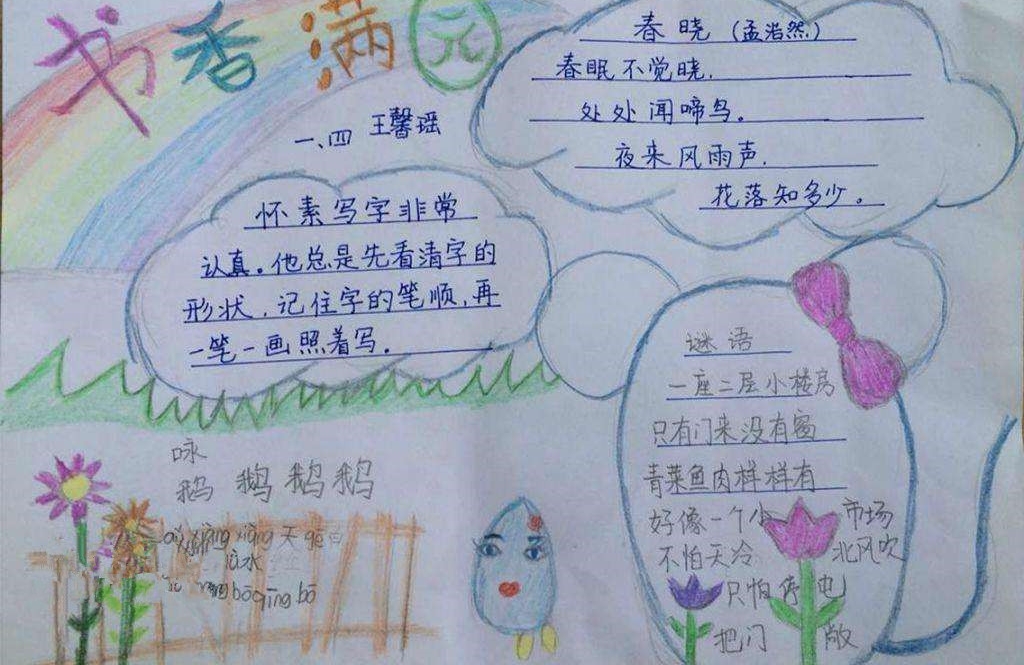 书香满元
一、四 王馨瑶
春晓 (孟浩然)
春眠不觉晓.
处处闻啼鸟。
夜来风雨声.
花落知多少。
怀素写字非常
认真。他总是先看清字的
形状，记住字的笔顺，再
一笔一画照着写.
谜语
一座二层小楼房
只有门来没有窗
青菜鱼肉样样有
好像一个小市场
不怕天冷北风吹
只怕停电
把门敞
咏
鹅 鹅 鹅 鹅
xiàng 天
水
bōqīng bō